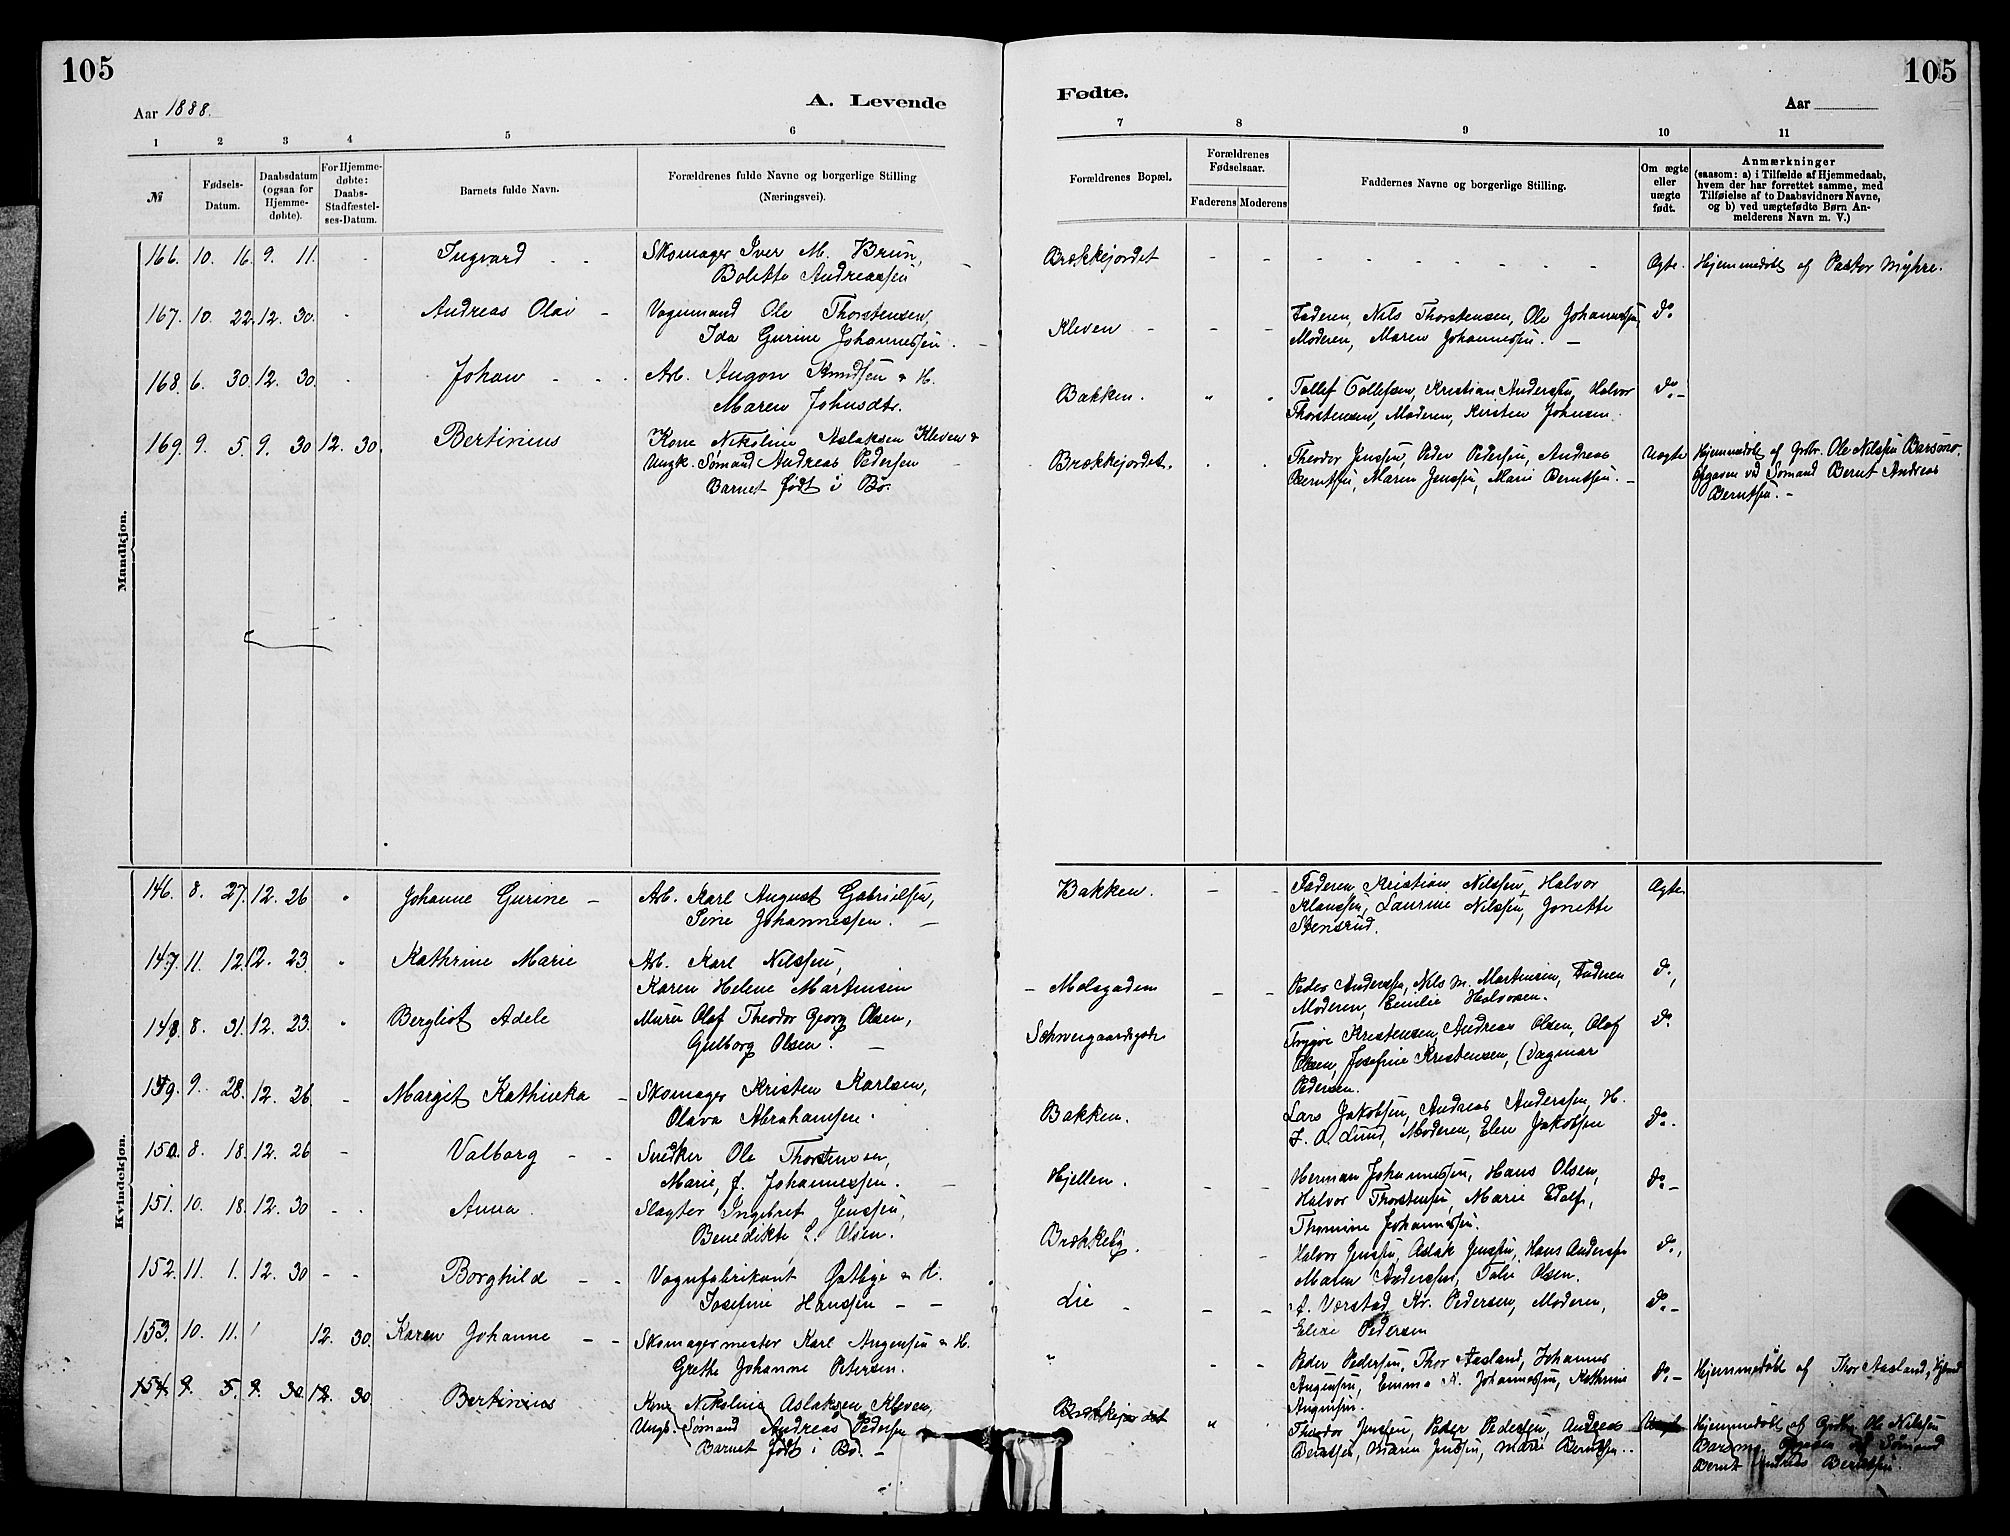 105
105
Aar 1888.
A. Levende
Fødte.
Aar
1 2 3 4 5 6 7 8 9 10 11
№
Fødsels-
Datum.
Daabsdatum
(ogsaa for
Hjemme-
døbte).
For Hjemme-
døbte:
Daabs-
Stadfæstel-
ses-Datum.
Barnets fulde Navn.
Forældrenes fulde Navne og borgerlige Stilling
(Næringsvei).
Forældrenes Bopæl.
Forældrenes
Fødselsaar.
Faderens Moderens
Faddernes Navne og borgerlige Stilling.
Om ægte
eller
uægte
født.
Anmærkninger
(saasom: a) i Tilfælde af Hjemmedaab,
hvem der har forrettet samme, med
Tilføielse af to Daabsvidners Navne,
og b) ved uægtefødte Børn An-
melderens Navn m. V.)
Mandkjøn.
166. 10. 16. 9. 11. - - Ingvard - - Skomager Iver M. Brun, Brækkejordet - - - Ægte. Hjemmedøbt af Pastor Myhre.
Bolette Andreassen
167. 10. 22. 12. 30. - Andreas Olai - Vognmand Ole Thorstensen, Kleven - - - Faderen, Nils Thorstensen, Ole Johannessen, do
Ida Gurine Johannessen. - Moderen, Maren Johannessen. -
168. 6. 30. 12. 30. - Johan - - Arb. Knudsen & H. Bakken. " " Tollef Tollefsen, Kristian Andersen, Halvor do -
Maren Johnsdtr. Thorstensen, Moderen, Kirsten Johnsen.
169. 9. 5. 9. 30 12. 30. Bertinius Kone Nikoline Aslaksen Kleven & Brækkejordet. Theodor Jenssen, Peder Pedersen, Andreas Uægte Hjemmedøbt af Grbr. Ole Nilssen Barsmo.
Ungk. Sømand Andreas Pedersen Berntsen, Maren Jenssen, Marie Berntsen. - Opgaven ved Sømand Bernt Andreas
Barnet født i Bø. Berntsen. -
Kvindekjøn.
146. 8. 27. 12. 26 " Johanne Gurine - Arb. Karl August Gabrielsen, Bakken. - - Faderen, Kristian Nilssen, Halvor Ægte.
Sine Johannessen. - Klaussen, Laurine Nilssen, Jonette
Stensrud.
147. 11. 12. 12. 23. " Kathrine Marie Arb. Karl Nilssen, - Molsgaden - - Peder Anderssen, Nils M. Martinsen, Faderen do,
Karen Helene Martinsen Moderen, Emilie Halvorsen.
148. 8. 31. 12. 23. " Bergliot Adele Murer Olaf Theodor Georg Olsen, Schweigaardsgade Trygve Kristensen, Andreas Olsen, Olaf do.
Gulborg Olsen. - Olsen, Josefine Kristensen, Dagmar
Pedersen.
149. 9. 28. 12. 26. - Margit Kathinka - Skomager Kristen Karlsen, Bakken. Lars Jakobsen, Andreas Anderssen, H. do.
Olava Abrahamsen. Lund, Moderen, Elen Jakobsen
150. 8. 18. 12. 26 - Valborg - - Snedker Ole Thorstensen, Hjellen. - - Herman Johannessen, Hans Olsen, do -
Marie, f. Johannessen. - Halvor Thorstensen, Marie
Thomine Johannessen.
151. 10. 18. 12. 30 - - Anna. Slagter Ingebret Jenssen, Brækkeby. - Halvor Jenssen, Aslak Jenssen, Hans Anderssen do,
Benedikte L. Olsen. Maren Anderssen, Olsen.
152. 11. 1. 12. 30 - - Borghild - - Vognfabrikant Østbye & H. Lie - - - Kr. Pedersen, Moderen, do -
Josefine Hanssen - - Elise Pedersen
153. 10. 11. 12. 30. Karen Johanne - - Skomagermester Karl Augensen & H. " - - Peder Pedersen, Thor Aasland, Johannes do - Hjemmedøbt af Thor Aasland,
Grethe Johanne Petersen. Augensen, Emma Johannessen, Kathrine
Augensen.
154. 9. 5. 9. 30. 12. 30 Bertinius Kone Nikoline Aslaksen Kleven, Brækkejordet " Theodor Jenssen, Peder Pedersen, Andreas Uægte Hjemmedøbt af Grbr. Ole Nilssen
Ungk. Sømand Andreas Pedersen Berntsen, Maren Jenssen, Marie Berntsen. Barsmo, Opgaven ved Sømand
Barnet født i Bø. - Bernt Andreas Berntsen.